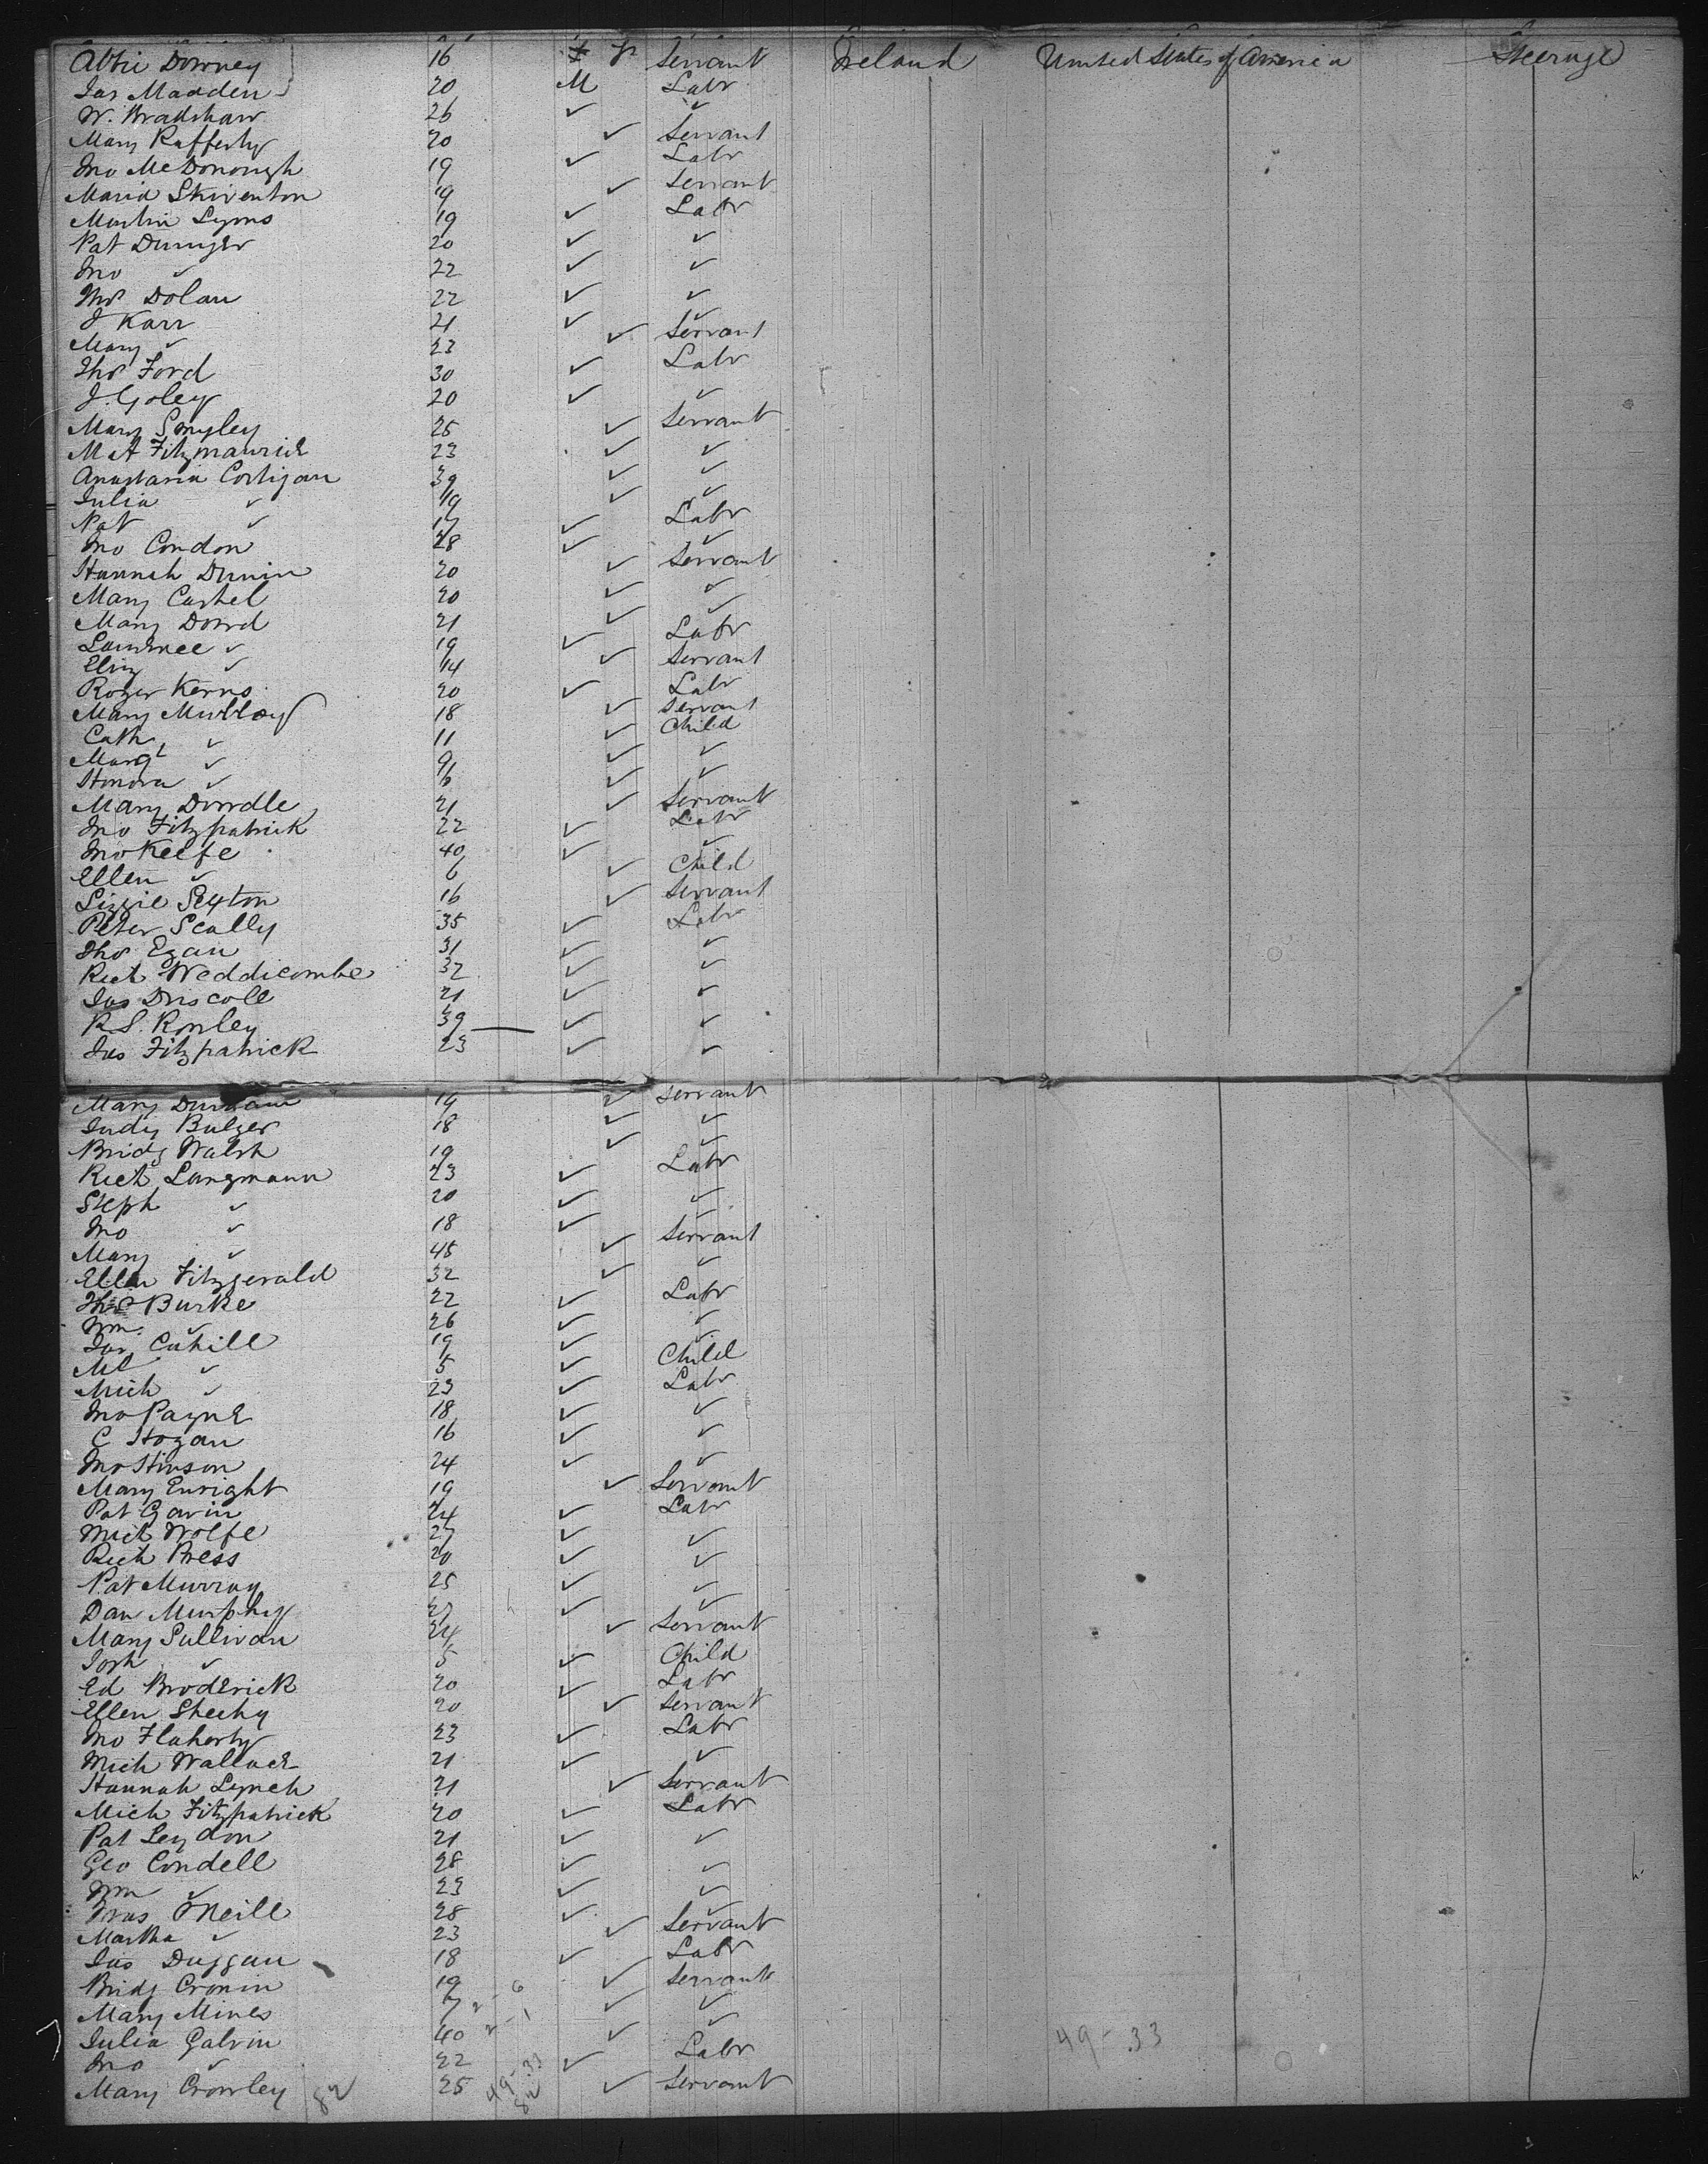 Abbie Downey 16 f Servant Ireland United States of America Steerage
Jas Madden 20 M Labr
W. Bradshaw 26 ✓ ✓
Mary Rafferty 20 ✓ Servant
Jno McDonough 19 ✓ Labr
Maria 19 ✓ Servant
Martin Lyons 19 ✓ Labr
Pat 20 ✓ ✓
Jno ✓ 22 ✓ ✓
Thos Dolan 22 ✓ ✓
J Karr 21 ✓ ✓
Mary ✓ 23 ✓ Servant
Thos Ford 30 ✓ Labr
J. Goley 20 ✓ ✓
Mary Smyley 25 ✓ Servant
M A Fitzmaurice 23 ✓ ✓
Anastasia Costigan 39 ✓ ✓
Julia ✓ 19 ✓ ✓
Pat ✓ 17 ✓ Labr
Jno Condon 28 ✓ ✓
Hannah 20 ✓ Servant
Mary Cashel 20 ✓ ✓
Mary Dowd 21 ✓ ✓
Lawrence ✓ 19 ✓ Labr
Eliz ✓ 14 ✓ Servant
Roger Kerns 20 ✓ Labr
Mary 18 ✓ Servant
Cath ✓ 11 ✓ Child
Margt ✓ 9 ✓ ✓
Honora ✓ 6 ✓ ✓
Mary Dowdle 21 ✓ Servant
Jno Fitzpatrick 22 ✓ Labr
Jno Keefe 40 ✓ ✓
Ellen ✓ 6 ✓ Child
Lizzie Sexton 16 ✓ Servant
Peter Scally 35 ✓ Labr
Thos Egan 31 ✓ ✓
Rich Weddicombe 32 ✓ ✓
Jas Driscoll 21 ✓ ✓
R. S. Rowley 39 ✓ ✓
Jas Fitzpatrick 23 ✓ ✓
Mary 19 ✓ Servant
Judy Bulger 18 ✓ ✓
Bridg Walsh 19 ✓ ✓
Rich Langmann 23 ✓ Labr
Steph ✓ 20 ✓ ✓
Jno ✓ 18 ✓ ✓
Mary ✓ 45 ✓ Servant
Ellen Fitzgerald 32 ✓ ✓
Thos Burke 22 ✓ Labr
Wm ✓ 26 ✓ ✓
Jas Cahill 19 ✓ ✓
Ml ✓ 5 ✓ Child
Mich ✓ 23 ✓ Labr
Jno Payne 18 ✓ ✓
C Hogan 16 ✓ ✓
Jno Hinson 24 ✓ ✓
Mary Enright 19 ✓ Servant
Pat Gavin 24 ✓ Labr
Mich Wolfe 27 ✓ ✓
Rich Press 20 ✓ ✓
Pat Murray 25 ✓ ✓
Dan Murphy 27 ✓ ✓
Mary Sullivan 24 ✓ Servant
Josh ✓ 5 ✓ Child
Ed Broderick 20 ✓ Labr
Ellen Sheehy 20 ✓ Servant
Jno Flaherty 23 ✓ Labr
Mich Wallace 21 ✓ ✓
Hannah Lynch 21 ✓ Servant
Mich Fitzpatrick 20 ✓ Labr
Pat Leydon 21 ✓ ✓
Geo Condell 28 ✓ ✓
Wm ✓ 23 ✓ ✓
O'Neill 28 ✓ ✓
Martha ✓ 23 ✓ Servant
Jas Duggan 18 ✓ Labr
Bridg Cronin 19 ✓ Servant
Mary Mines 2 - 6 ✓ ✓
Julia Galvin 40 2 - 1 ✓ ✓
Jno ✓ 22 ✓ Labr 49 - 33
Mary Crowley 82 25 49 - 33 82 ✓ Servant